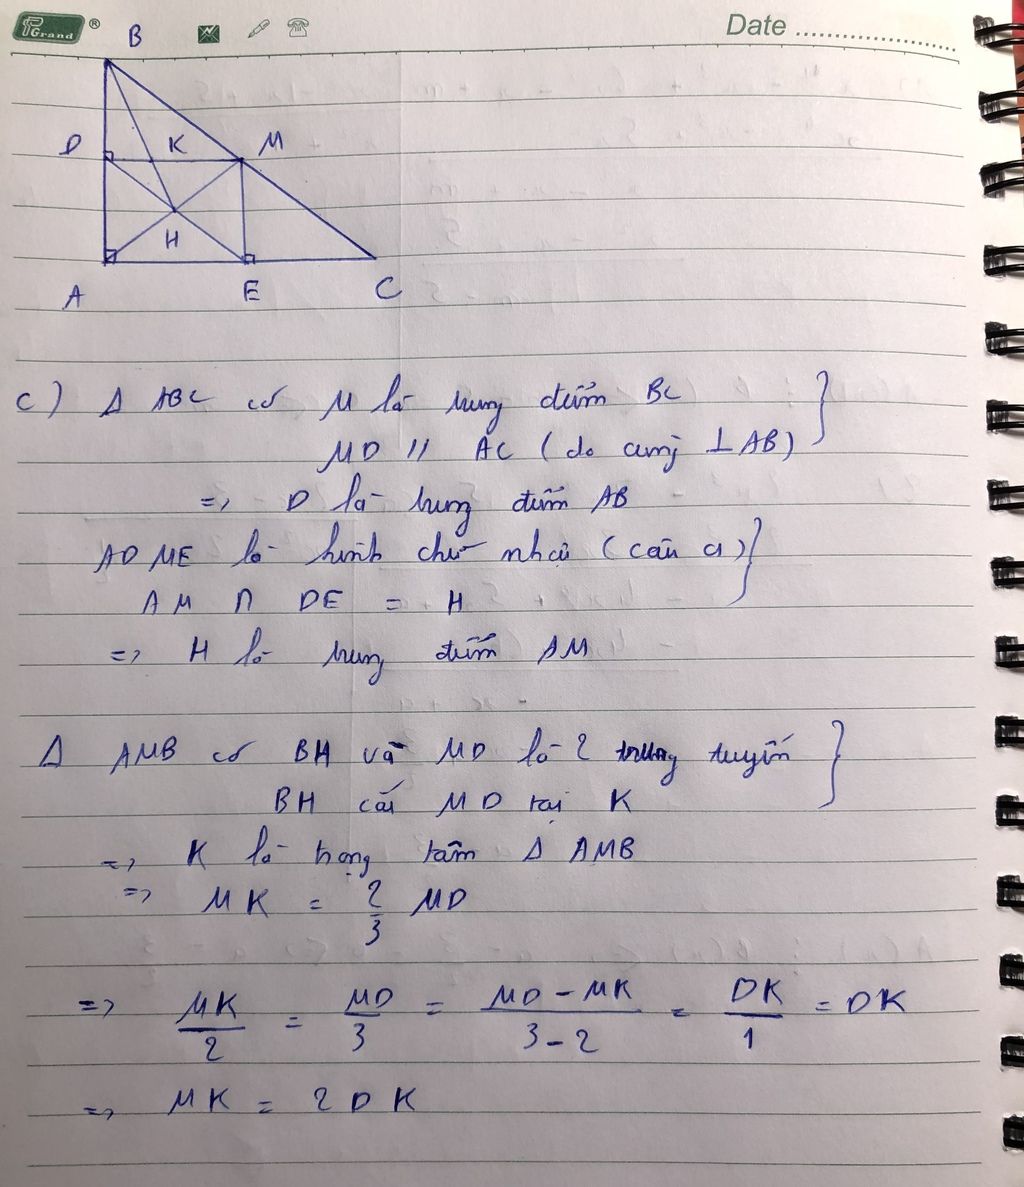 Grand ®
Date
B
D K M
H
A E C
c) Δ ABC có M là trung điểm BC
MD // AC (do cùng ⊥ AB)
=> D là trung điểm AB
ADME là hình chữ nhật (câu a)
AM ∩ DE = H
=> H là trung điểm AM
Δ AMB có BH và MD là 2 trung tuyến
BH cắt MD tại K
=> K là trọng tâm Δ AMB
=> MK = 2/3 MD
=> MK/2 = MD/3 = (MD - MK)/(3 - 2) = DK/1 = DK
=> MK = 2DK